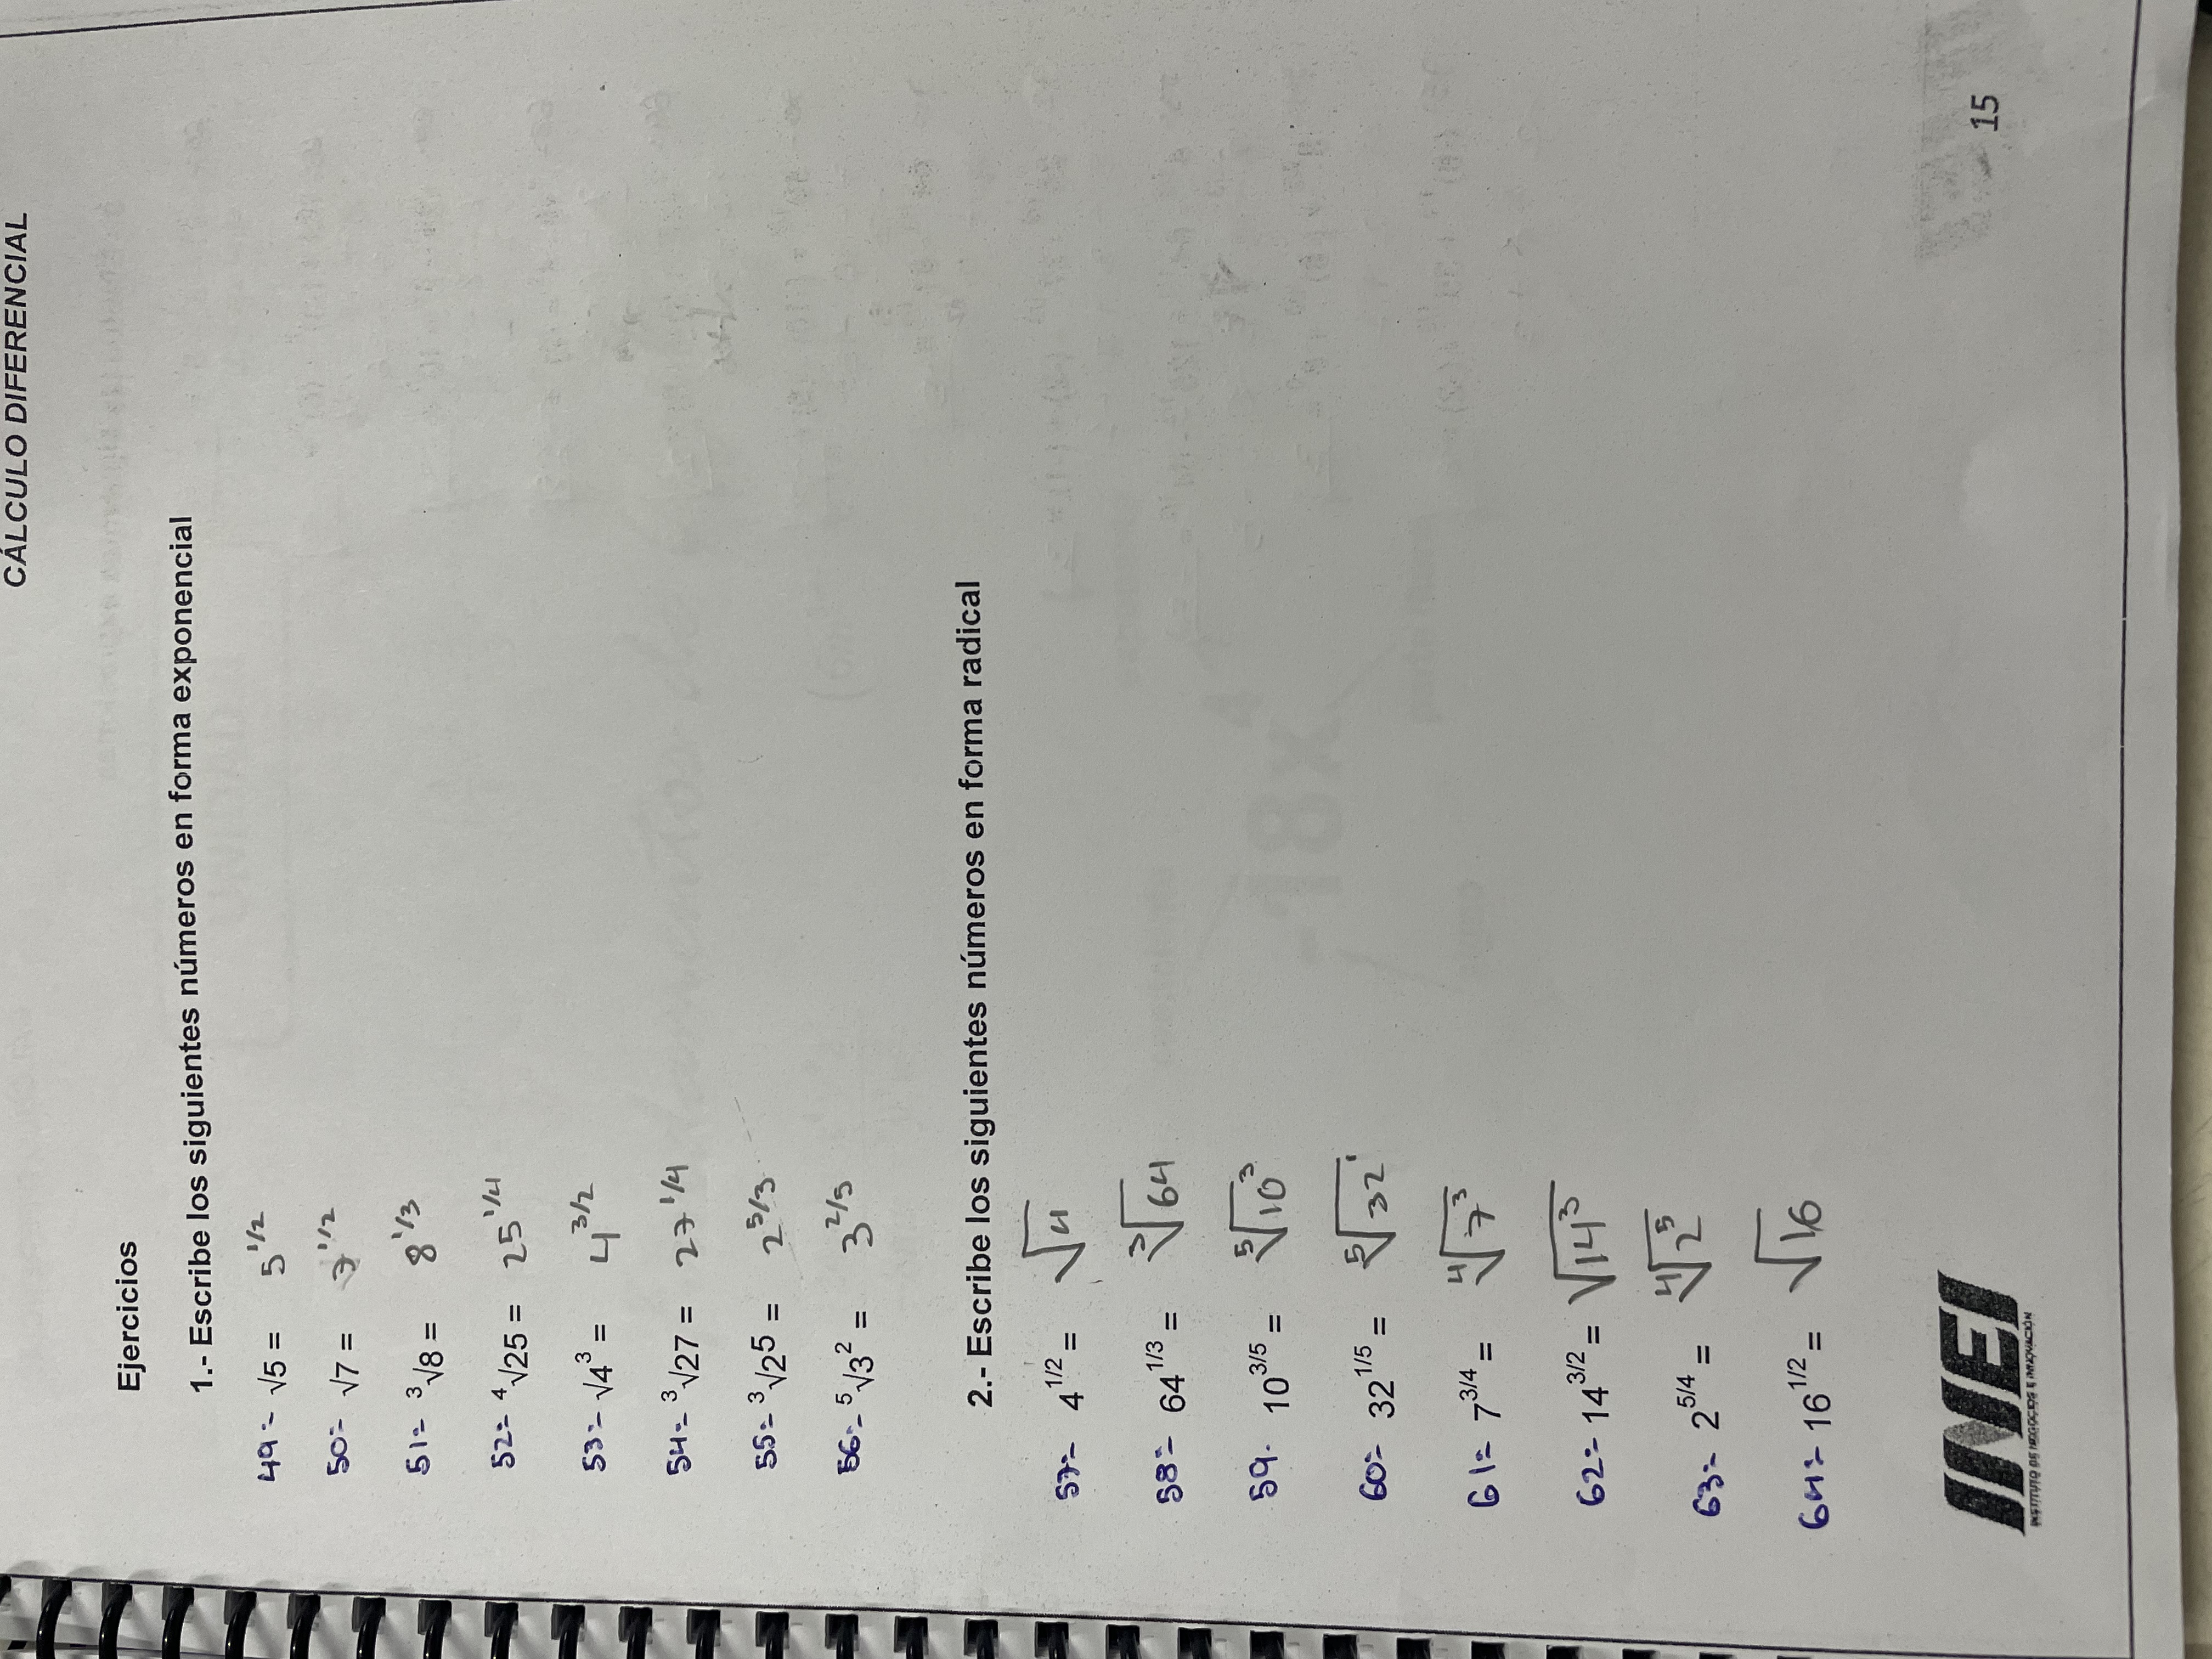 CÁLCULO DIFERENCIAL
Ejercicios
1.- Escribe los siguientes números en forma exponencial
49.- √5 = 5^1/2
50.- √7 = 7^1/2
51.- ³√8 = 8^1/3
52.- ⁴√25 = 25^1/4
53.- √4³ = 4^3/2
54.- ³√27 = 27^1/4
55.- ³√25 = 2^5/3
56.- ⁵√3² = 3^2/5
2.- Escribe los siguientes números en forma radical
57.- 4^1/2 = √4
58.- 64^1/3 = ³√64
59.- 10^3/5 = ⁵√10³
60.- 32^1/5 = ⁵√32
61.- 7^3/4 = ⁴√7³
62.- 14^3/2 = √14³
63.- 2^5/4 = ⁴√2⁵
64.- 16^1/2 = √16
INEI
INSTITUTO DE NEGOCIOS E INNOVACIÓN
15